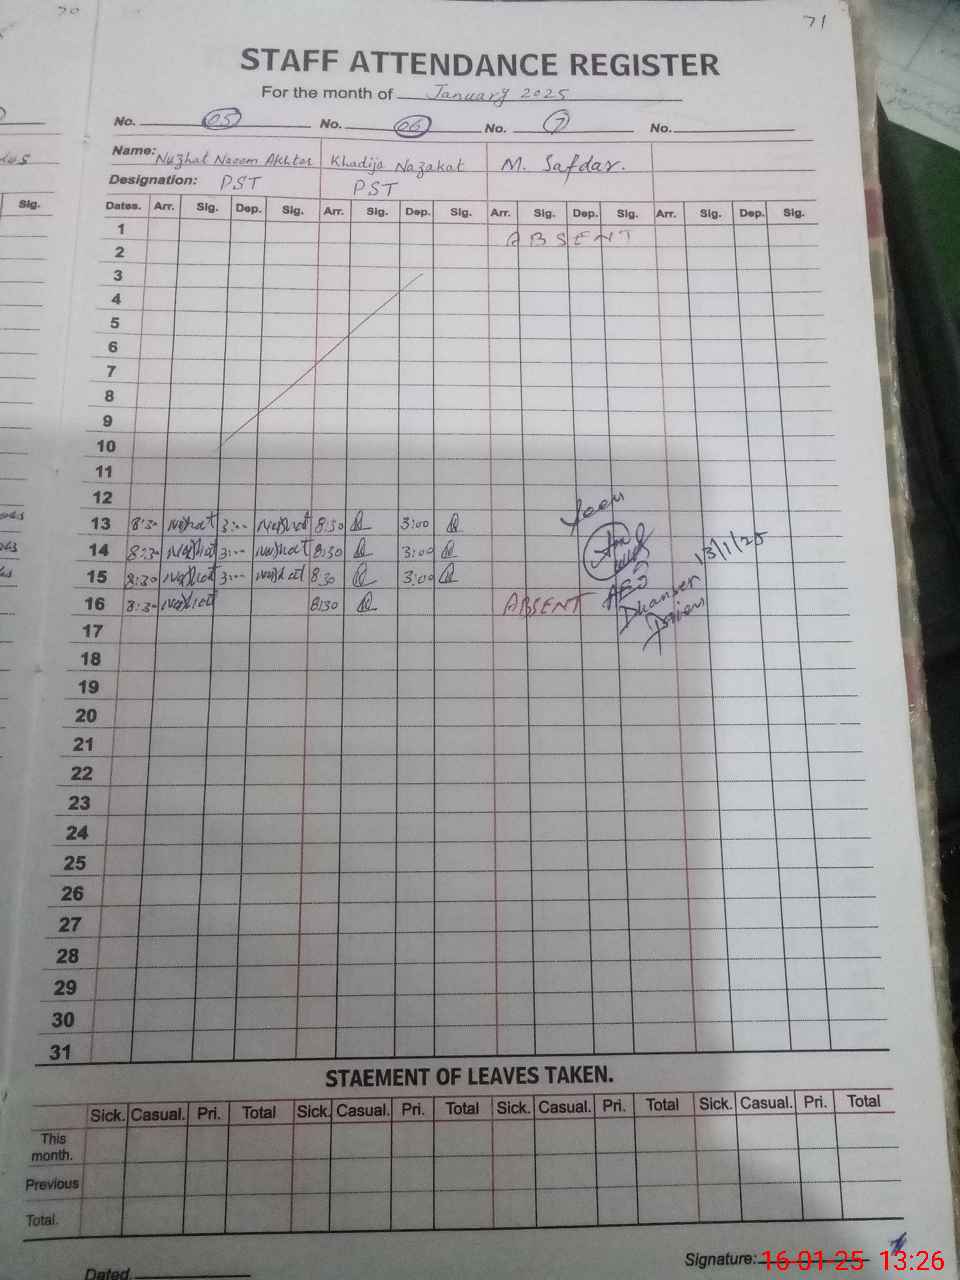 70
71
STAFF ATTENDANCE REGISTER
For the month of January 2025
No. 05 No. 06 No. 7 No.
Name: Nuzhat Naeem Akhter Khadija Nazakat M. Safdar.
Designation: PST PST
Sig. Dates. Arr. Sig. Dep. Sig. Arr. Sig. Dep. Sig. Arr. Sig. Dep. Sig. Arr. Sig. Dep. Sig.
1 ABSENT
2
3
4
5
6
7
8
9
10
11
12
Seen
13 8:30 Nuzhat 3:-- Nuzhat 8:30 3:00
14 8:30 Nuzhat 3:-- Nuzhat 8:30 3:00 13/1/25
15 8:30 Nuzhat 3:-- Nuzhat 8:30 3:00 AEO
16 8:30 Nuzhat 8:30 ABSENT
17
18
19
20
21
22
23
24
25
26
27
28
29
30
31
STAEMENT OF LEAVES TAKEN.
Sick. Casual. Pri. Total Sick. Casual. Pri. Total Sick. Casual. Pri. Total Sick. Casual. Pri. Total
This
month.
Previous
Total.
Dated. Signature:
16-01-25 13:26